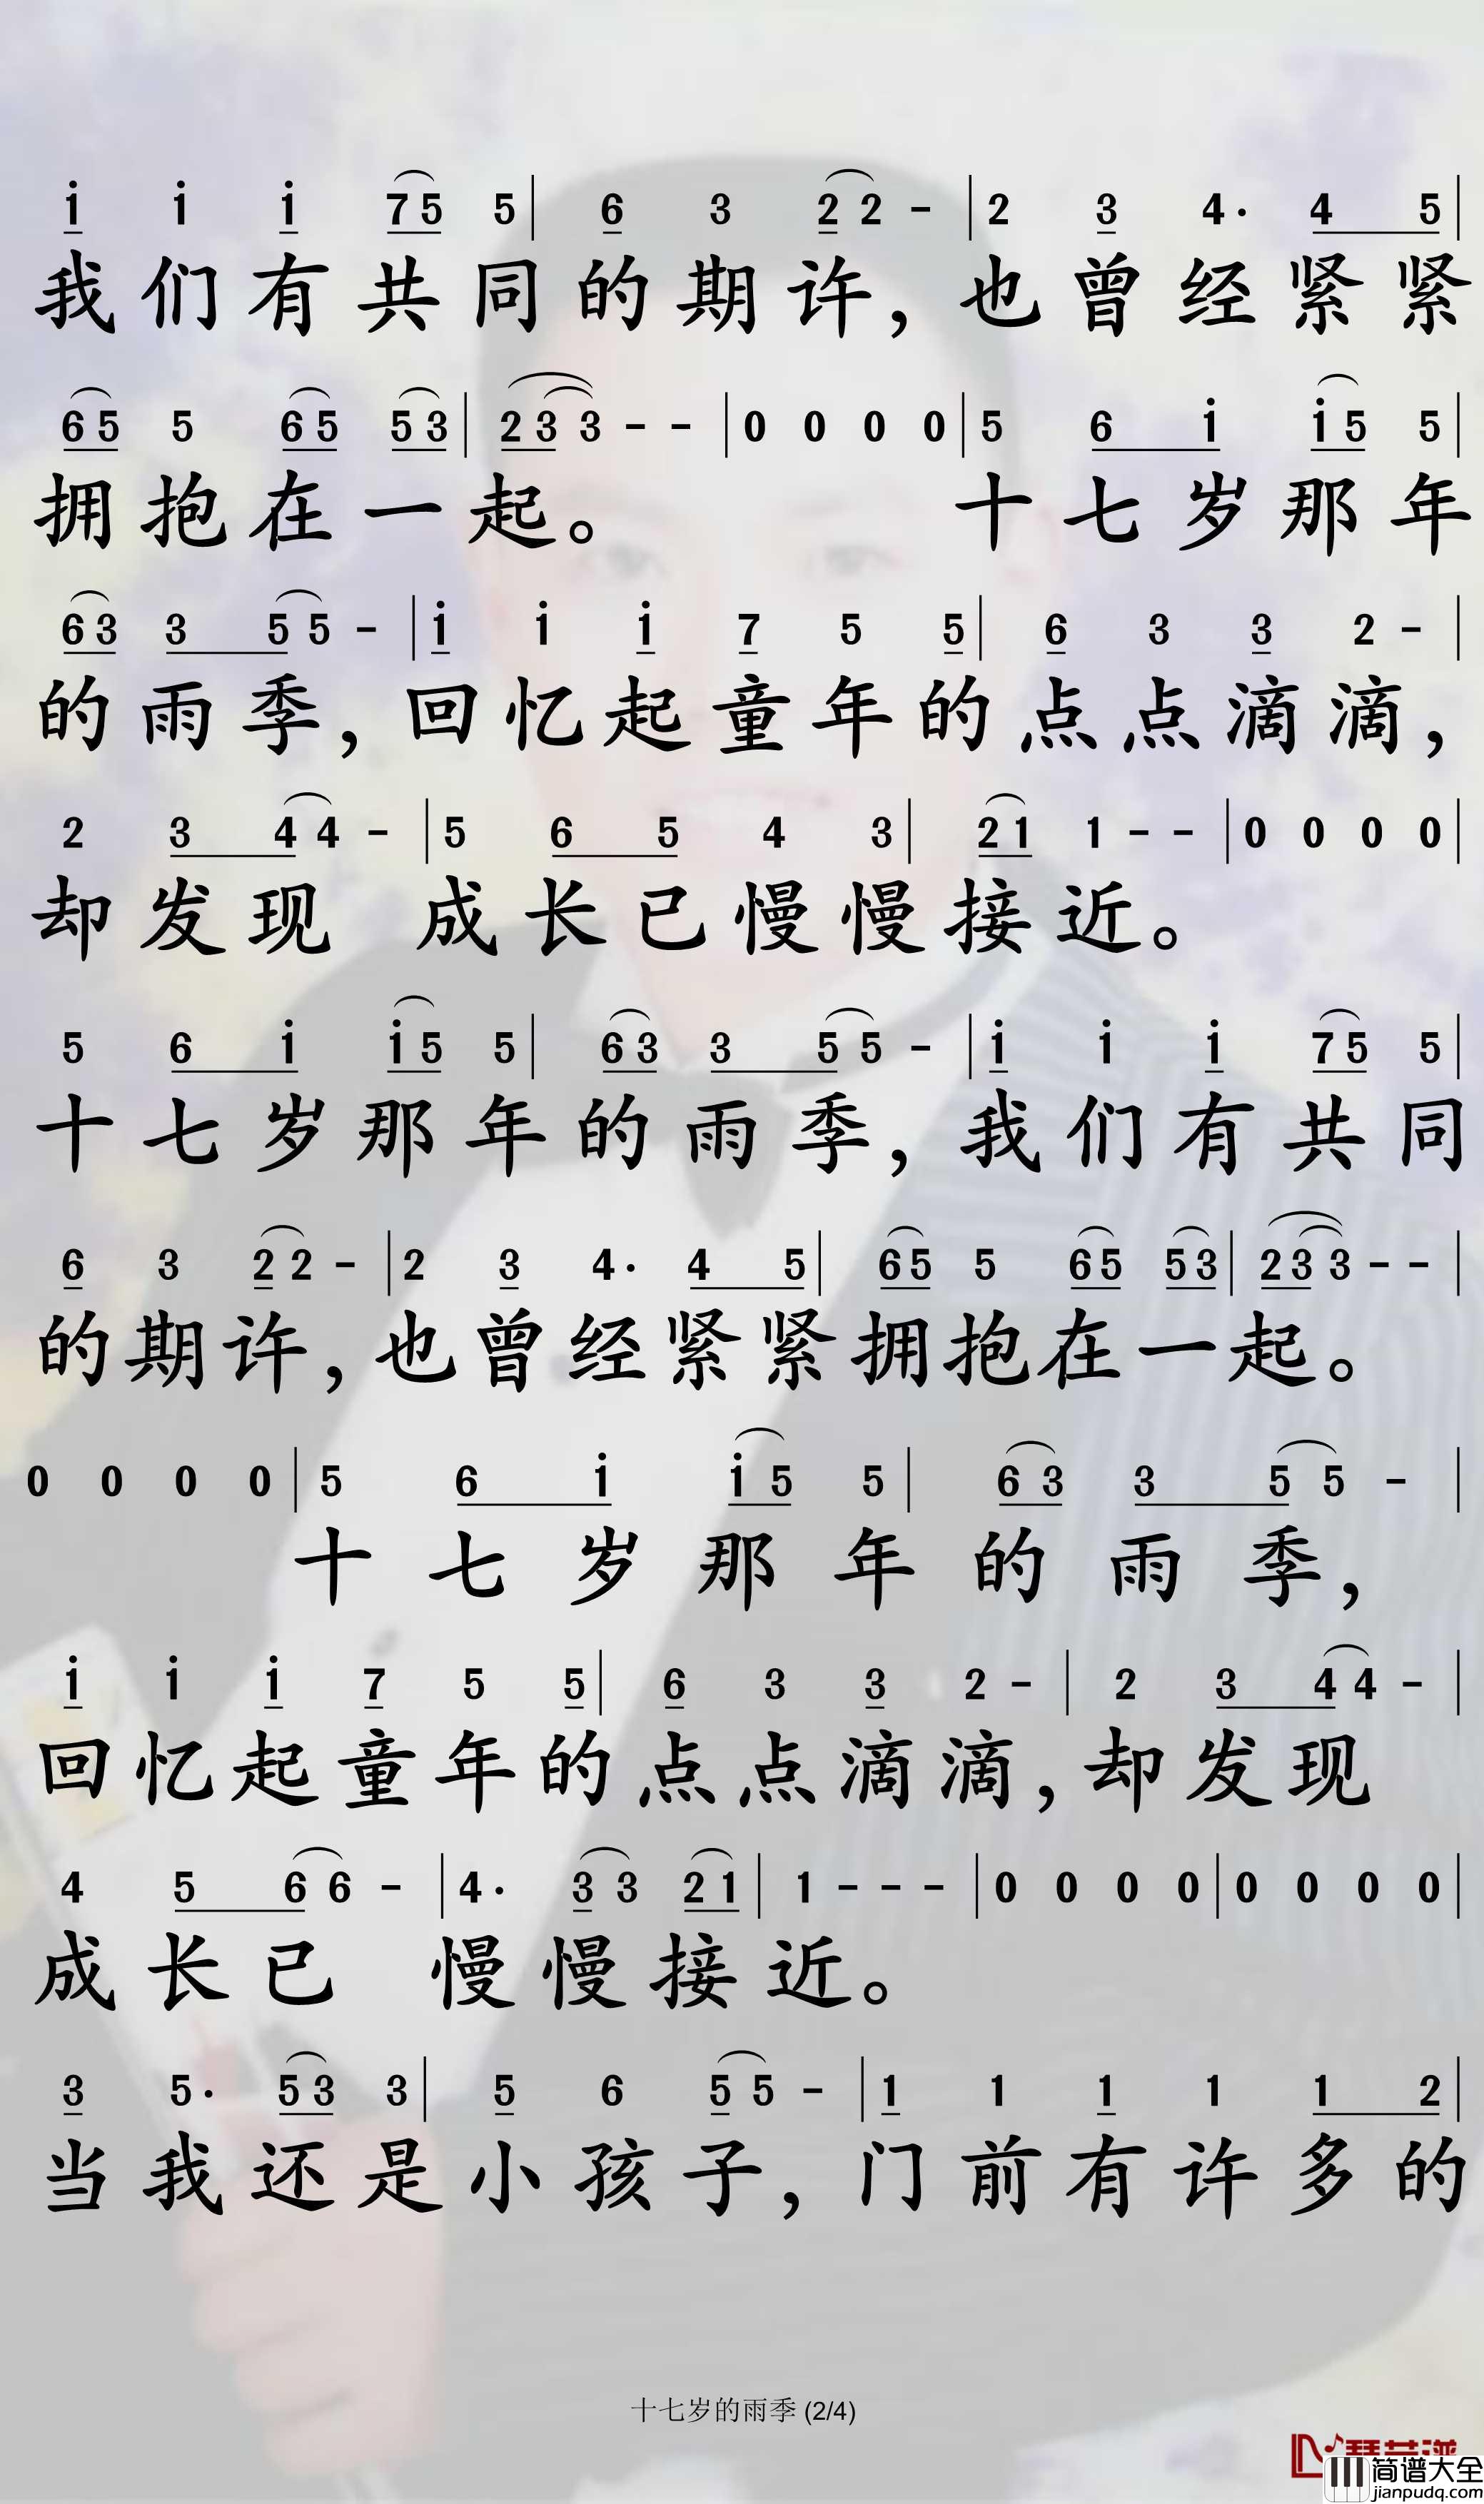 i i i 7 5 5 | 6 3 2 2 - | 2 3 4. 4 5 |
我们有共同的期许，也曾经紧紧
6 5 5 6 5 5 3 | 2 3 3 - - | 0 0 0 0 | 5 6 i i 5 5 |
拥抱在一起。 十七岁那年
6 3 3 5 5 - | i i i 7 5 5 | 6 3 3 2 - |
的雨季，回忆起童年的点点滴滴，
2 3 4 4 - | 5 6 5 4 3 | 2 1 1 - - | 0 0 0 0 |
却发现 成长已慢慢接近。
5 6 i i 5 5 | 6 3 3 5 5 - | i i i 7 5 5 |
十七岁那年的雨季，我们有共同
6 3 2 2 - | 2 3 4. 4 5 | 6 5 5 6 5 5 3 | 2 3 3 - - |
的期许，也曾经紧紧拥抱在一起。
0 0 0 0 | 5 6 i i 5 5 | 6 3 3 5 5 - |
十七岁那年的雨季，
i i i 7 5 5 | 6 3 3 2 - | 2 3 4 4 - |
回忆起童年的点点滴滴，却发现
4 5 6 6 - | 4. 3 3 2 1 | 1 - - - | 0 0 0 0 | 0 0 0 0 |
成长已 慢慢接近。
3 5. 5 3 3 | 5 6 5 5 - | 1 1 1 1 1 2 |
当我还是小孩子，门前有许多的
十七岁的雨季 (2/4)
简谱大全
jianpudq.com